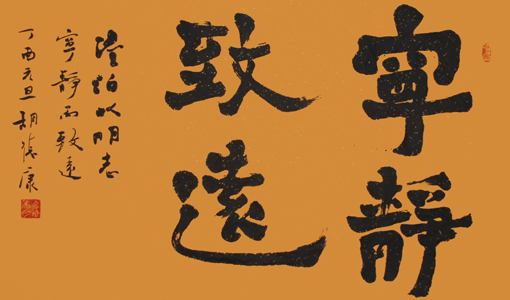 寧靜
致遠
澹泊以明志
寧靜而致遠
丁酉元旦胡德康